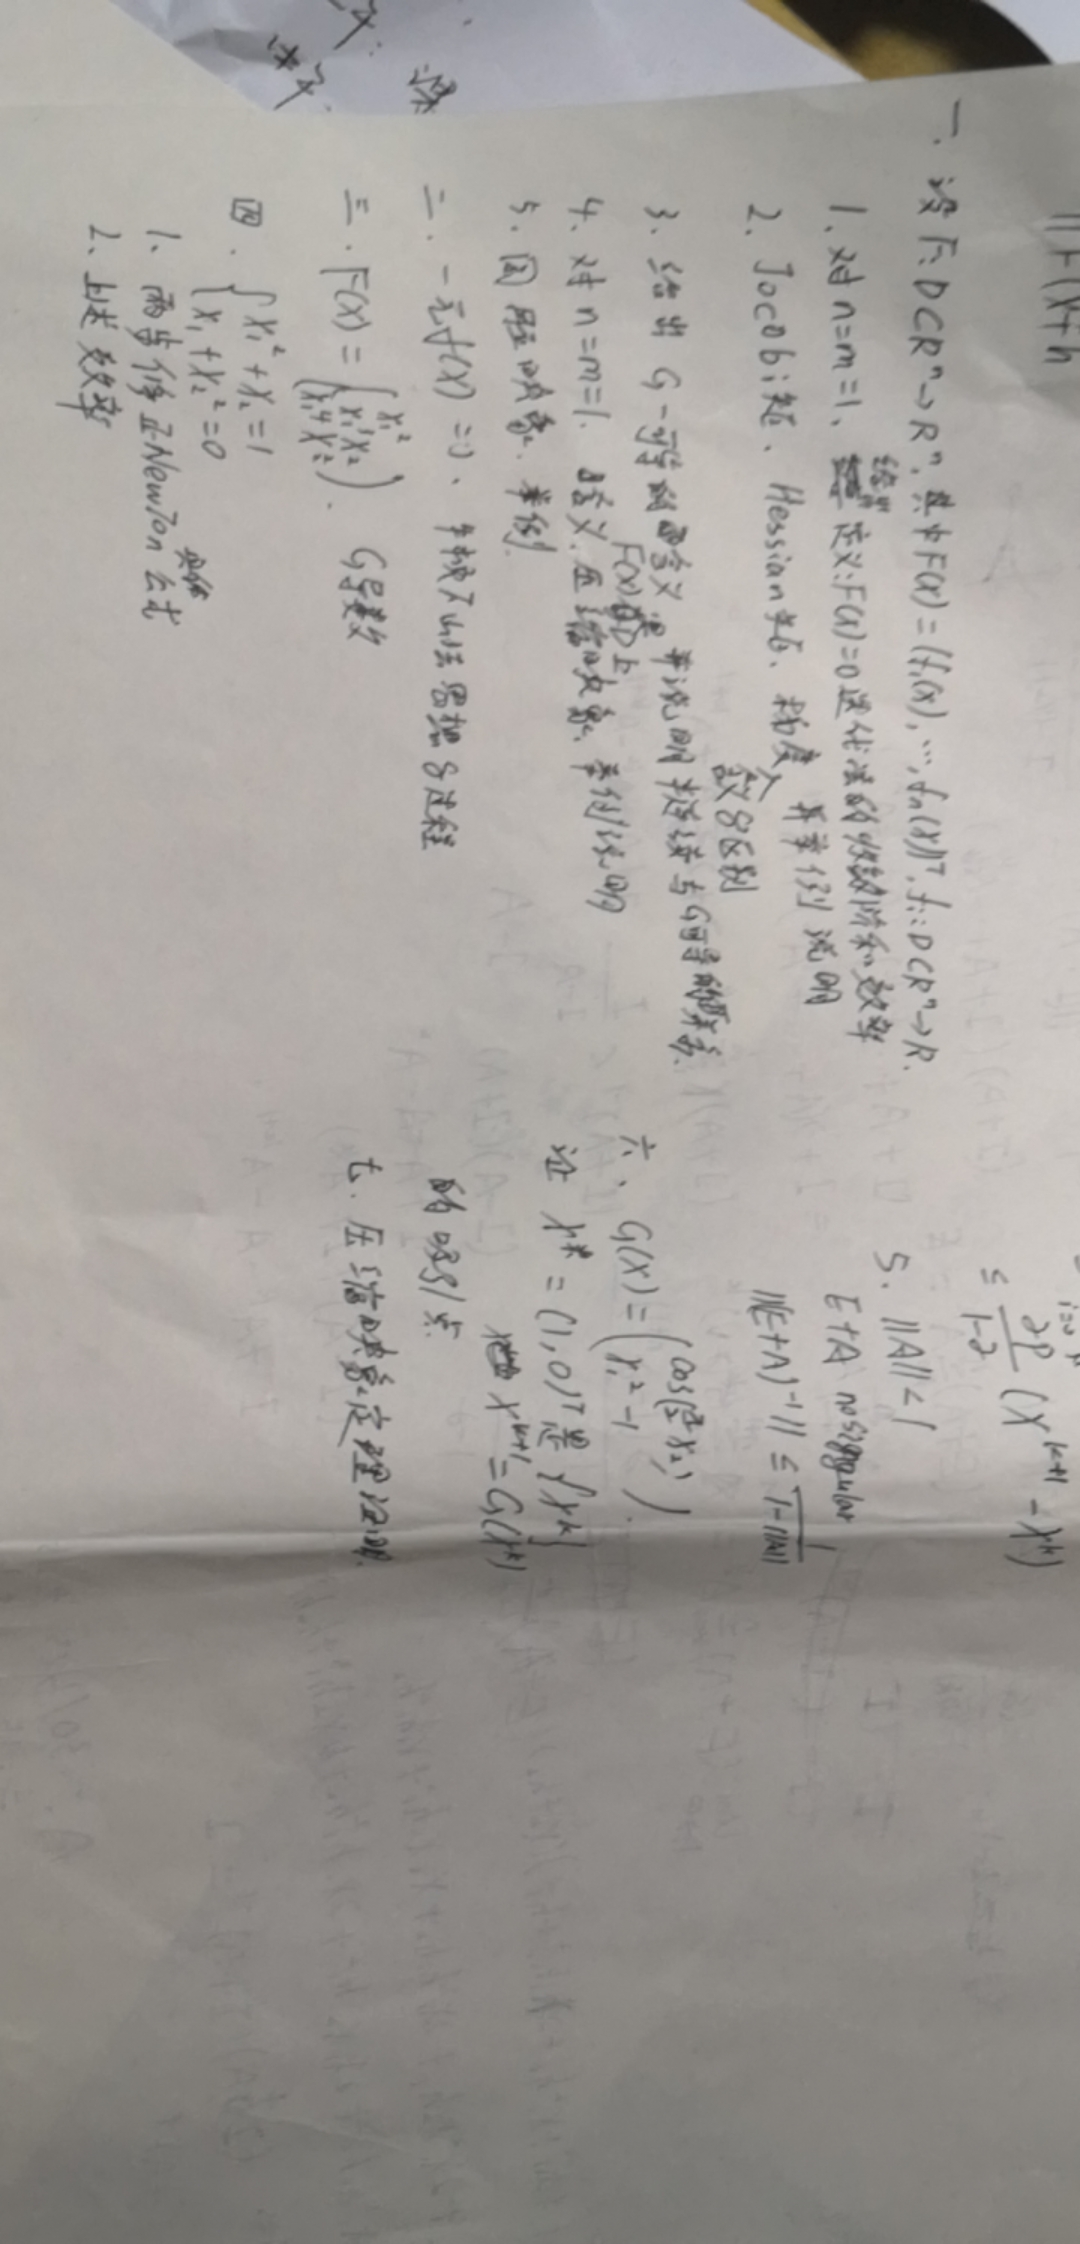 ||F(x+h
一. 设 F: D⊂Rⁿ→Rⁿ, 其中F(x) = (f₁(x), …, fₙ(x))ᵀ, fᵢ: D⊂Rⁿ→R.
1. 对 n=m=1, 给出 定义: F(x)=0 迭代法的收敛阶和效率
并举例说明
2. Jocobi矩. Hessian矩. 梯度
含义&区别
3. 给出 G-可导的含义, 并说明半连续与G可导的联系.
F(x)是D上
4. 对 n=m=1. 含义. 压缩映象. 举例说明
5. 同胚映象. 举例.
二. 一元f(x) =0. 牛顿下山法思想&过程
三. F(x) = (x₁² x₁³x₂ x₁⁴x₂²). G导数
四. { x₁²+x₂=1
x₁+x₂²=0
具体
1. 两步修正NewTon 公式
2. 上述效率
i=0
≤ ∂P/1-∂ (X^{k+1} - X^k)
5. ||A|| < 1
E+A nosigngular
||(E+A)⁻¹|| ≤ 1/1-||A||
六. G(X) = (cos(π/2 x₂) x₁²-1).
证 X* = (1,0)ᵀ是 {X^k}
X^{k+1} = G(X^k)
的吸引点
七. 压缩映象定理证明.